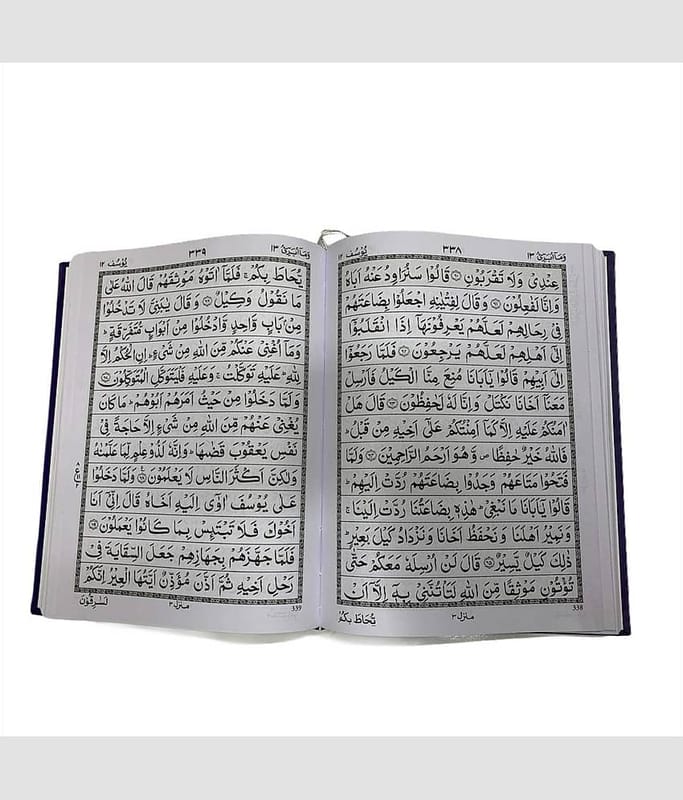 وَمَآ اُبَرِّئُ ١٣
٣٣٨
يُوْسُف ١٢
عِنْدِيْ وَلَا تَقْرَبُوْنِ قَالُوْا سَنُرَاوِدُ عَنْهُ اَبَاهُ
وَاِنَّا لَفٰعِلُوْنَ وَقَالَ لِفِتْيٰنِهِ اجْعَلُوْا بِضَاعَتَهُمْ
فِيْ رِحَالِهِمْ لَعَلَّهُمْ يَعْرِفُوْنَهَآ اِذَا انْقَلَبُوْٓا
اِلٰٓى اَهْلِهِمْ لَعَلَّهُمْ يَرْجِعُوْنَ فَلَمَّا رَجَعُوْٓا
اِلٰٓى اَبِيْهِمْ قَالُوْا يٰٓاَبَانَا مُنِعَ مِنَّا الْكَيْلُ فَاَرْسِلْ
مَعَنَآ اَخَانَا نَكْتَلْ وَاِنَّا لَهٗ لَحٰفِظُوْنَ قَالَ هَلْ
اٰمَنُكُمْ عَلَيْهِ اِلَّا كَمَآ اَمِنْتُكُمْ عَلٰٓى اَخِيْهِ مِنْ قَبْلُ ؕ
فَاللّٰهُ خَيْرٌ حٰفِظًا ۪ وَّهُوَ اَرْحَمُ الرّٰحِمِيْنَ وَلَمَّا
فَتَحُوْا مَتَاعَهُمْ وَجَدُوْا بِضَاعَتَهُمْ رُدَّتْ اِلَيْهِمْ ؕ
قَالُوْا يٰٓاَبَانَا مَا نَبْغِيْ ؕ هٰذِهٖ بِضَاعَتُنَا رُدَّتْ اِلَيْنَا ۚ
وَنَمِيْرُ اَهْلَنَا وَنَحْفَظُ اَخَانَا وَنَزْدَادُ كَيْلَ بَعِيْرٍ ؕ
ذٰلِكَ كَيْلٌ يَّسِيْرٌ قَالَ لَنْ اُرْسِلَهٗ مَعَكُمْ حَتّٰى
تُؤْتُوْنِ مَوْثِقًا مِّنَ اللّٰهِ لَتَاْتُنَّنِيْ بِهٖٓ اِلَّآ اَنْ
338
منزل ٣
يُّحَاطَ بِكُمْ
وَمَآ اُبَرِّئُ ١٣
٣٣٩
يُوْسُف ١٢
يُّحَاطَ بِكُمْ ۚ فَلَمَّآ اٰتَوْهُ مَوْثِقَهُمْ قَالَ اللّٰهُ عَلٰى
مَا نَقُوْلُ وَكِيْلٌ وَقَالَ يٰبَنِيَّ لَا تَدْخُلُوْا
مِنْۢ بَابٍ وَّاحِدٍ وَّادْخُلُوْا مِنْ اَبْوَابٍ مُّتَفَرِّقَةٍ ؕ
وَمَآ اُغْنِيْ عَنْكُمْ مِّنَ اللّٰهِ مِنْ شَيْءٍ ؕ اِنِ الْحُكْمُ اِلَّا
لِلّٰهِ ؕ عَلَيْهِ تَوَكَّلْتُ ۚ وَعَلَيْهِ فَلْيَتَوَكَّلِ الْمُتَوَكِّلُوْنَ
وَلَمَّا دَخَلُوْا مِنْ حَيْثُ اَمَرَهُمْ اَبُوْهُمْ ؕ مَا كَانَ
يُغْنِيْ عَنْهُمْ مِّنَ اللّٰهِ مِنْ شَيْءٍ اِلَّا حَاجَةً فِيْ
نَفْسِ يَعْقُوْبَ قَضٰىهَا ؕ وَاِنَّهٗ لَذُوْ عِلْمٍ لِّمَا عَلَّمْنٰهُ
وَلٰكِنَّ اَكْثَرَ النَّاسِ لَا يَعْلَمُوْنَ وَلَمَّا دَخَلُوْا
عَلٰى يُوْسُفَ اٰوٰٓى اِلَيْهِ اَخَاهُ قَالَ اِنِّيْٓ اَنَا
اَخُوْكَ فَلَا تَبْتَئِسْ بِمَا كَانُوْا يَعْمَلُوْنَ
فَلَمَّا جَهَّزَهُمْ بِجَهَازِهِمْ جَعَلَ السِّقَايَةَ فِيْ
رَحْلِ اَخِيْهِ ثُمَّ اَذَّنَ مُؤَذِّنٌ اَيَّتُهَا الْعِيْرُ اِنَّكُمْ
339
منزل ٣
لَسٰرِقُوْنَ